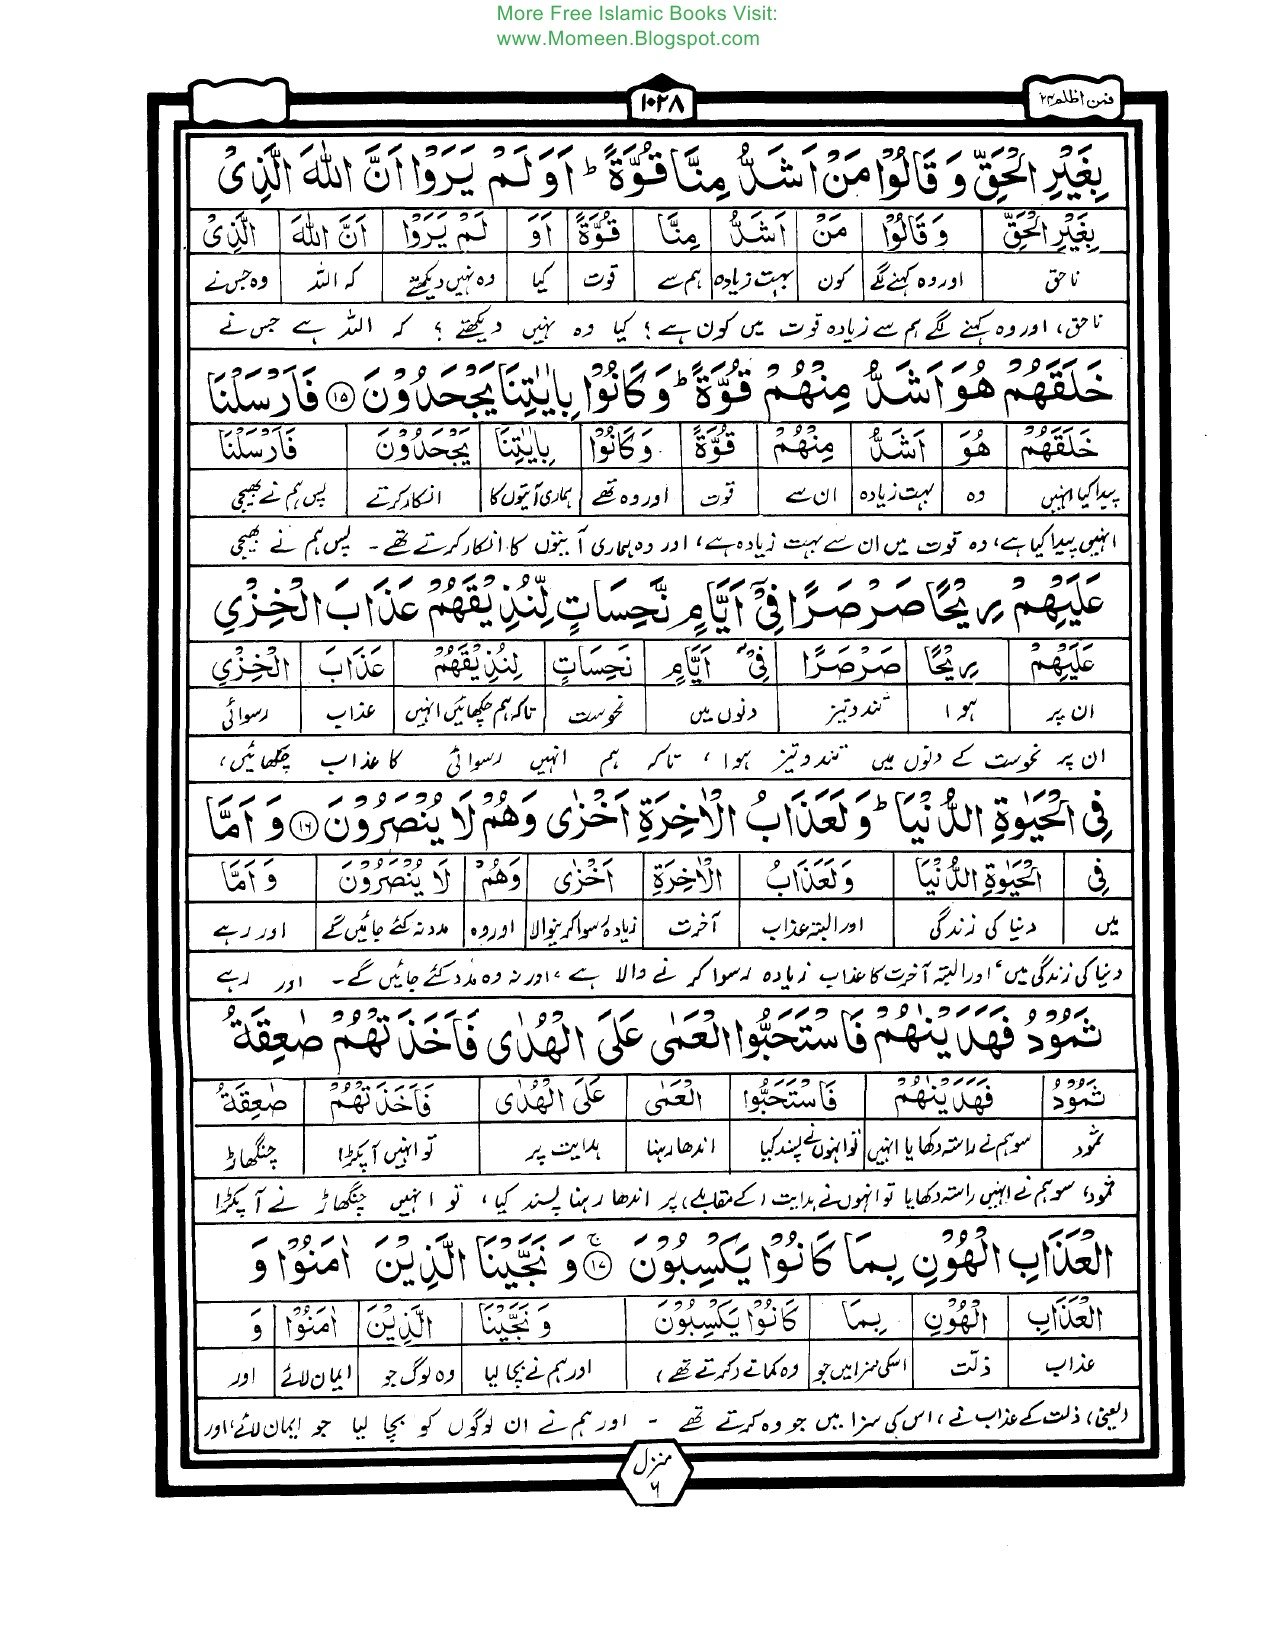 More Free Islamic Books Visit:
www.Momeen.Blogspot.com
فمن اظلم ۲۴
۱۰۲۸
بِغَيْرِ الْحَقِّ وَقَالُوْا مَنْ اَشَدُّ مِنَّا قُوَّةً ؕ اَوَلَمْ يَرَوْا اَنَّ اللّٰهَ الَّذِىْ
بِغَيْرِ الْحَقِّ وَقَالُوْا مَنْ اَشَدُّ مِنَّا قُوَّةً اَوَ لَمْ يَرَوْا اَنَّ اللّٰهَ الَّذِىْ
ناحق اور وہ کہنے لگے کون بہت زیادہ ہم سے قوت کیا وہ نہیں دیکھتے کہ اللہ وہ جس نے
ناحق، اور وہ کہنے لگے ہم سے زیادہ قوت میں کون ہے؟ کیا وہ نہیں دیکھتے؟ کہ اللہ ہے جس نے
خَلَقَهُمْ هُوَ اَشَدُّ مِنْهُمْ قُوَّةً ؕ وَكَانُوْا بِاٰيٰتِنَا يَجْحَدُوْنَ ۱۵ فَاَرْسَلْنَا
خَلَقَهُمْ هُوَ اَشَدُّ مِنْهُمْ قُوَّةً وَكَانُوْا بِاٰيٰتِنَا يَجْحَدُوْنَ فَاَرْسَلْنَا
پیدا کیا انہیں وہ بہت زیادہ ان سے قوت اور وہ تھے ہماری آیتوں کا انکار کرتے پس ہم نے بھیجی
انہیں پیدا کیا ہے، وہ قوت میں ان سے بہت زیادہ ہے، اور وہ ہماری آیتوں کا انکار کرتے تھے۔ پس ہم نے بھیجی
عَلَيْهِمْ رِيْحًا صَرْصَرًا فِىْٓ اَيَّامٍ نَّحِسَاتٍ لِّنُذِيْقَهُمْ عَذَابَ الْخِزْىِ
عَلَيْهِمْ رِيْحًا صَرْصَرًا فِىْٓ اَيَّامٍ نَحِسَاتٍ لِنُذِيْقَهُمْ عَذَابَ الْخِزْىِ
ان پر ہوا تند و تیز دنوں میں نحوست تاکہ ہم چکھائیں انہیں عذاب رسوائی
ان پر نحوست کے دنوں میں تند و تیز ہوا، تاکہ ہم انہیں رسوائی کا عذاب چکھائیں،
فِى الْحَيٰوةِ الدُّنْيَا ؕ وَلَعَذَابُ الْاٰخِرَةِ اَخْزٰى وَهُمْ لَا يُنْصَرُوْنَ ۱۶ وَاَمَّا
فِى الْحَيٰوةِ الدُّنْيَا وَلَعَذَابُ الْاٰخِرَةِ اَخْزٰى وَهُمْ لَا يُنْصَرُوْنَ وَاَمَّا
میں دنیا کی زندگی اور البتہ عذاب آخرت زیادہ رسوا کرنیوالا اور وہ مدد نہ کئے جائیں گے اور رہے
دنیا کی زندگی میں، اور البتہ آخرت کا عذاب زیادہ رسوا کرنے والا ہے، اور نہ وہ مدد کئے جائیں گے۔ اور رہے
ثَمُوْدُ فَهَدَيْنٰهُمْ فَاسْتَحَبُّوا الْعَمٰى عَلَى الْهُدٰى فَاَخَذَتْهُمْ صٰعِقَةُ
ثَمُوْدُ فَهَدَيْنٰهُمْ فَاسْتَحَبُّوا الْعَمٰى عَلَى الْهُدٰى فَاَخَذَتْهُمْ صٰعِقَةُ
ثمود سو ہم نے راستہ دکھایا انہیں تو انہوں نے پسند کیا اندھا رہنا ہدایت پر تو انہیں آ پکڑا چنگھاڑ
ثمود، سو ہم نے انہیں راستہ دکھایا تو انہوں نے ہدایت (کے مقابلے) پر اندھا رہنا پسند کیا، تو انہیں چنگھاڑ نے آ پکڑا
الْعَذَابِ الْهُوْنِ بِمَا كَانُوْا يَكْسِبُوْنَ ۱۷ۚ وَنَجَّيْنَا الَّذِيْنَ اٰمَنُوْا وَ
الْعَذَابِ الْهُوْنِ بِمَا كَانُوْا يَكْسِبُوْنَ وَنَجَّيْنَا الَّذِيْنَ اٰمَنُوْا وَ
عذاب ذلت اسکی سزا میں جو وہ کماتے (کرتے تھے) اور ہم نے بچا لیا وہ لوگ جو ایمان لائے اور
(یعنی) ذلت کے عذاب نے، اس کی سزا میں جو وہ کرتے تھے ۔ اور ہم نے ان لوگوں کو بچا لیا جو ایمان لائے، اور
منزل
۶